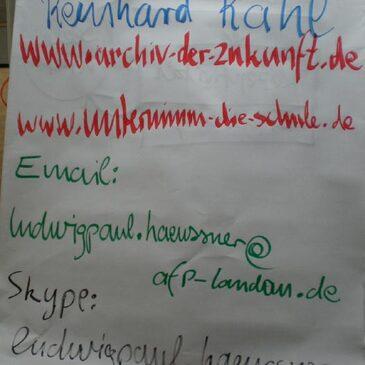 Reinhard Kahl
www.archiv-der-zukunft.de
www.unternimm-die-schule.de
Email:
ludwigpaul.haeussner@
afp-landau.de
Skype:
ludwigpaul.haeussner